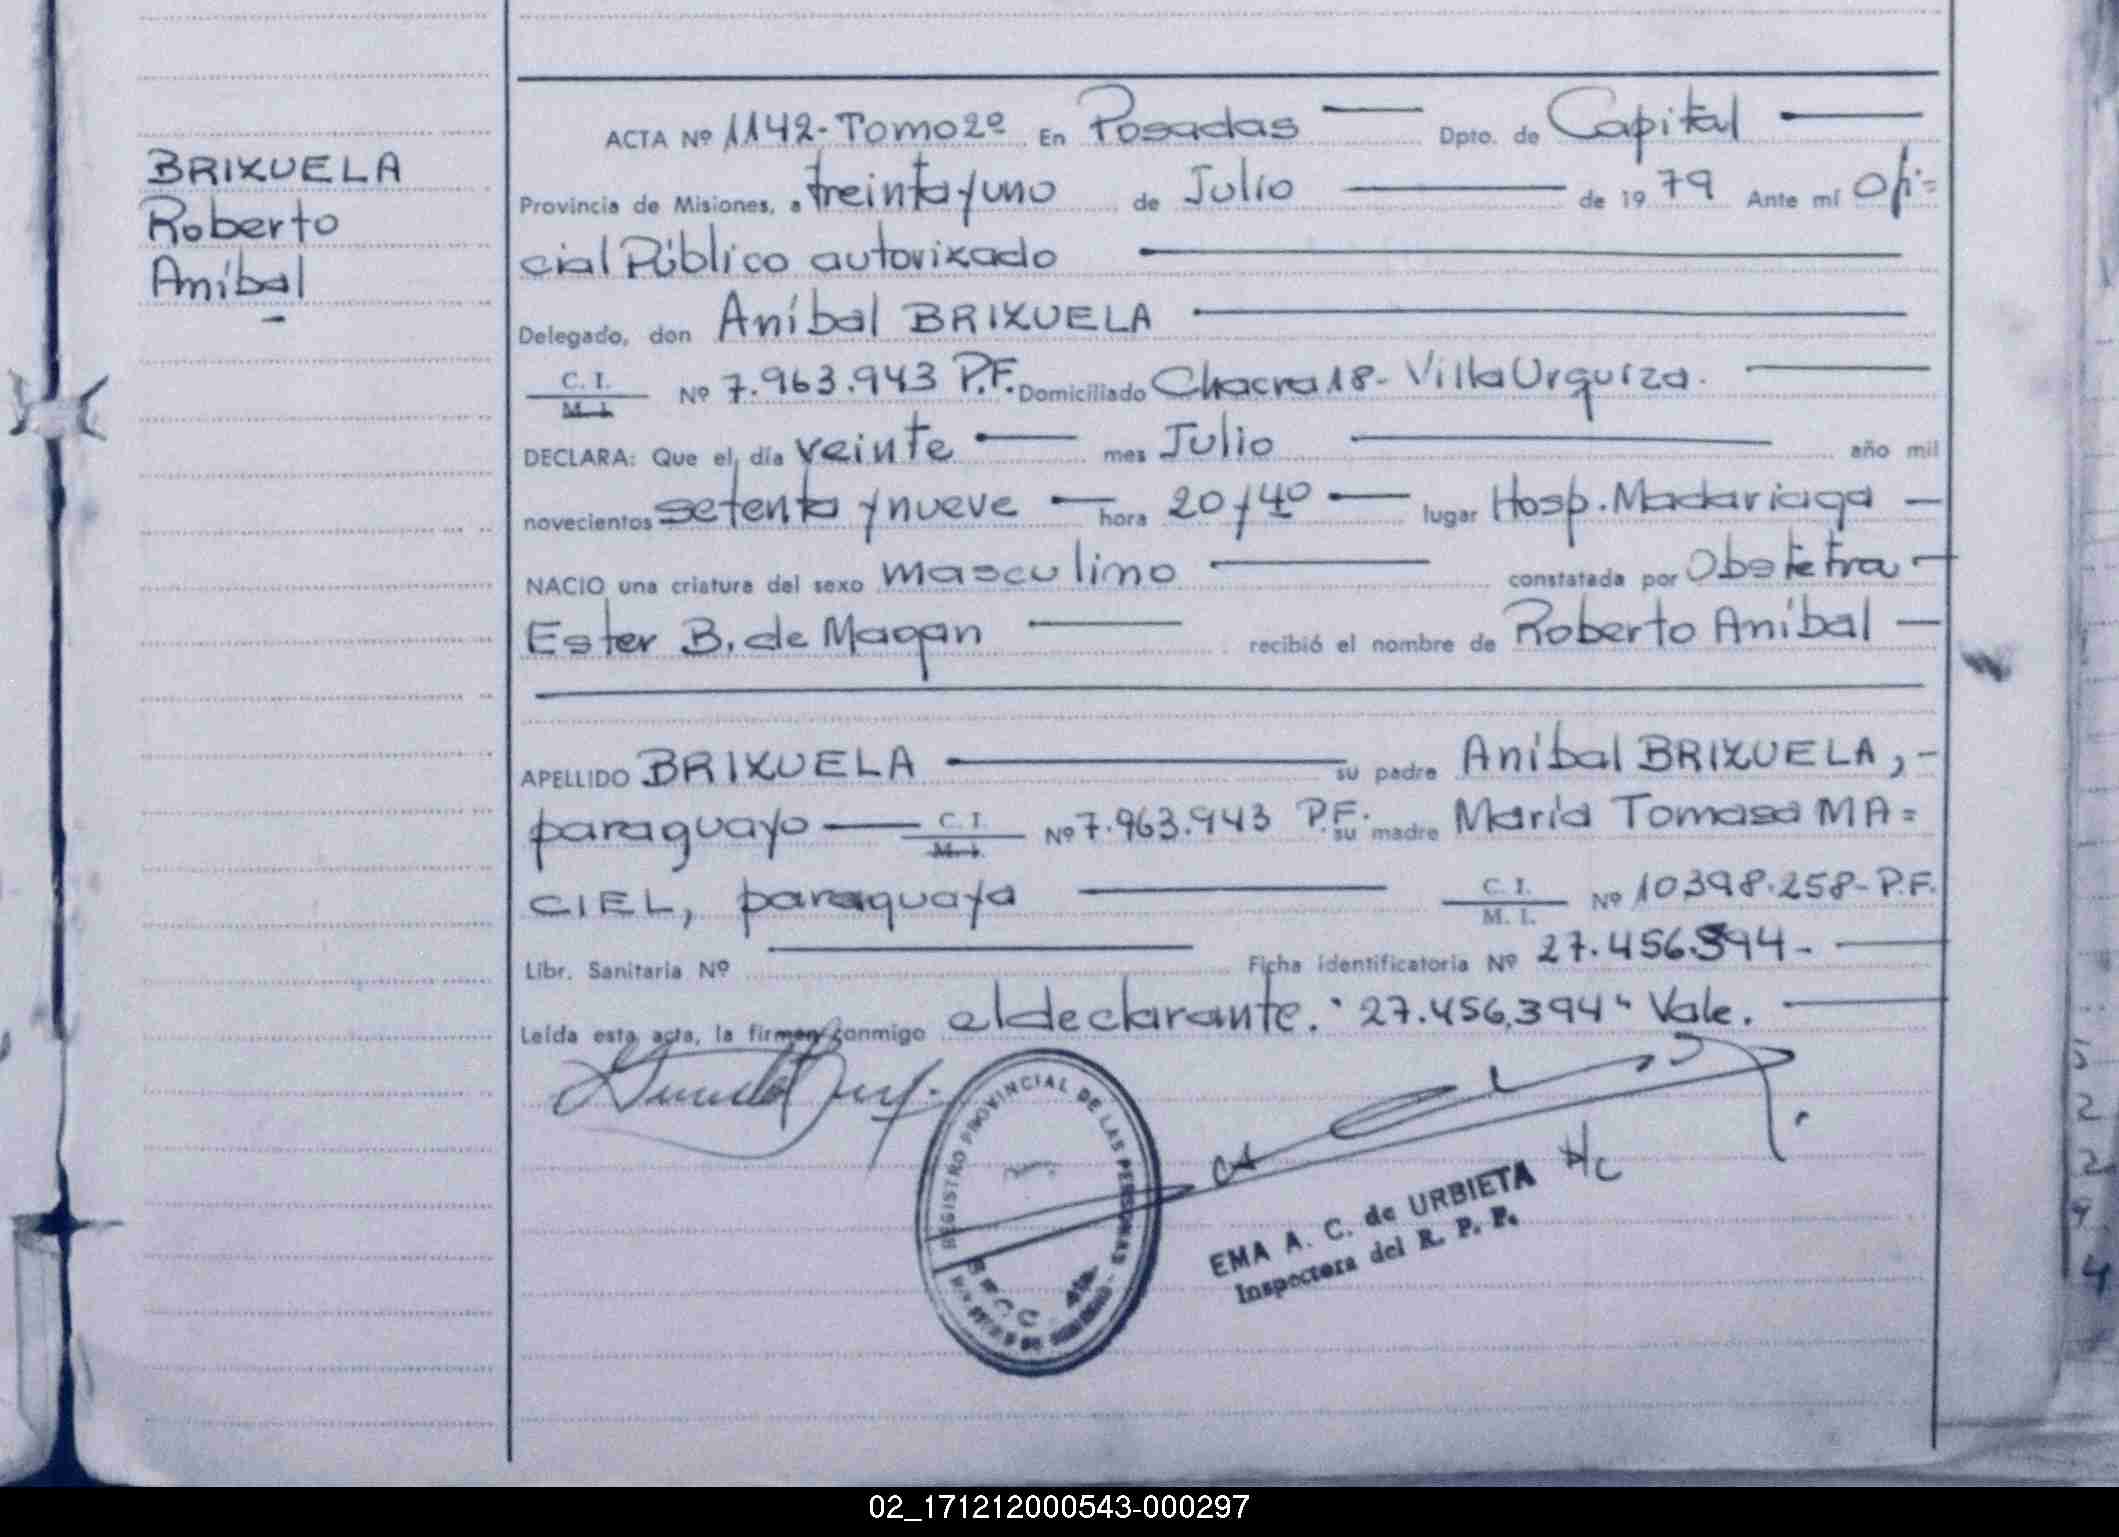 BRIXUELA
Roberto
Aníbal
ACTA Nº 1142-Tomo 2º En Posadas Dpto. de Capital
Provincia de Misiones, a treinta y uno de Julio de 1979 Ante mí Ofi=
cial Público autorixado
Delegado, don Aníbal BRIXUELA
C. I. / M. I. Nº 7.963.943 P.F. Domiciliado Chacra 18- Villa Urquiza.
DECLARA: Que el día veinte mes Julio año mil
novecientos setenta y nueve hora 20 y 40 lugar Hosp. Madariaga
NACIO una criatura del sexo masculino constatada por Obstetra
Ester B. de Magan recibió el nombre de Roberto Aníbal
APELLIDO BRIXUELA su padre Aníbal BRIXUELA,-
paraguayo C. I. / M. I. Nº 7.963.943 P.F. su madre María Tomasa MA=
CIEL, paraguaya C. I. / M. I. Nº 10398.258- P.F.
Libr. Sanitaria Nº Ficha identificatoria Nº 27.456.394-
Leída esta acta, la firman conmigo el declarante. "27.456.394" Vale.
REGISTRO PROVINCIAL DE LAS PERSONAS
EMA A. C. de URBIETA
Inspectora del R. P. P.
02_171212000543-000297